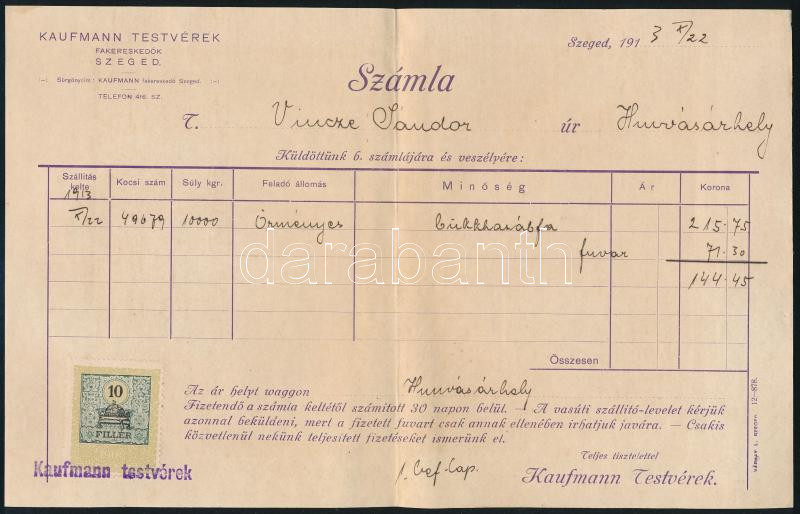 KAUFMANN TESTVÉREK
FAKERESKEDŐK
SZEGED.
Sürgönycim: KAUFMANN fakereskedő Szeged.
TELEFON 416. SZ.
Szeged, 1913 X/22
Számla
T. Vincze Sándor úr Hmvásárhely
Küldöttünk b. számlájára és veszélyére:
Szállítás kelte Kocsi szám Súly kgr. Feladó állomás Minőség Ár Korona
1913
X/22 49679 10000 Örményes bükkhasábfa 215.75
fuvar 71.30
144.45
darabanth
Összesen
10
FILLÉR
Az ár helyt waggon Hmvásárhely
Fizetendő a számla keltétől számított 30 napon belül. — A vasúti szállitó-levelet kérjük
azonnal beküldeni, mert a fizetett fuvart csak annak ellenében irhatjuk javára. — Csakis
közvetlenül nekünk teljesitett fizetéseket ismerünk el.
Teljes tisztelettel
Kaufmann Testvérek.
Kaufmann testvérek